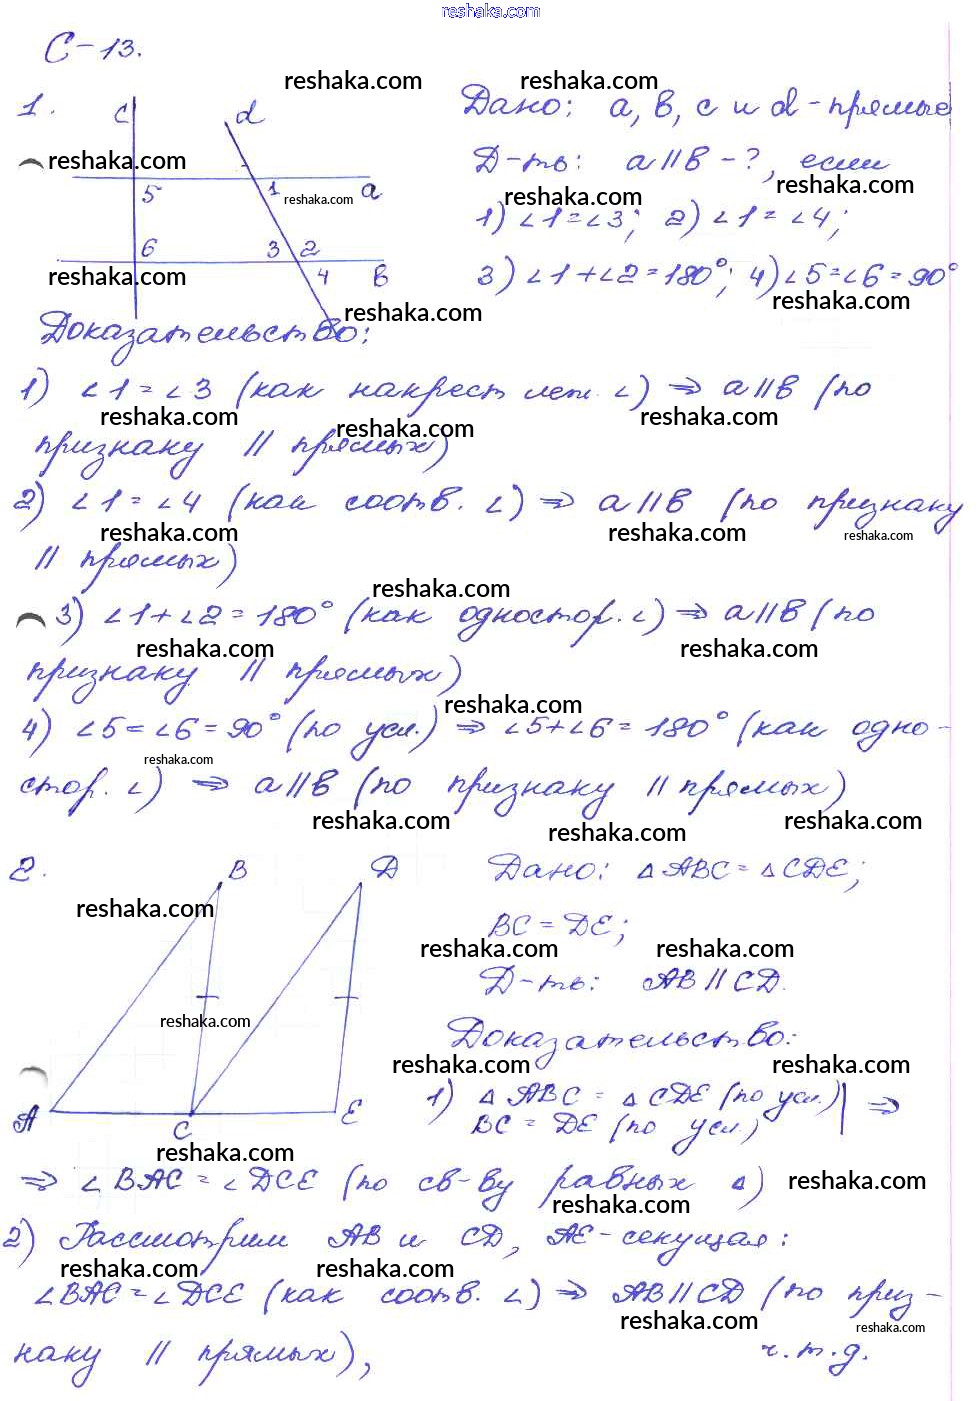 reshaka.com
С-13.
reshaka.com reshaka.com
1. c d Дано: a, b, c и d - прямые
reshaka.com Д-ть: a∥b - ?, если
5 1 reshaka.com a reshaka.com reshaka.com
1) ∠1=∠3; 2) ∠1=∠4;
6 3 2
reshaka.com 4 b 3) ∠1+∠2=180°; 4) ∠5=∠6=90°
reshaka.com reshaka.com
Доказательство:
1) ∠1=∠3 (как накрест леж. ∠) ⇒ a∥b (по
reshaka.com reshaka.com reshaka.com
признаку ∥ прямых)
2) ∠1=∠4 (как соотв. ∠) ⇒ a∥b (по признаку
reshaka.com reshaka.com reshaka.com
∥ прямых)
reshaka.com
3) ∠1+∠2=180° (как одностор. ∠) ⇒ a∥b (по
reshaka.com reshaka.com
признаку ∥ прямых)
reshaka.com
4) ∠5=∠6=90° (по усл.) ⇒ ∠5+∠6=180° (как одно-
reshaka.com
стор. ∠) ⇒ a∥b (по признаку ∥ прямых)
reshaka.com reshaka.com reshaka.com
2. B D Дано: △ABC=△CDE;
reshaka.com
BC=DE;
reshaka.com reshaka.com
Д-ть: AB∥CD.
reshaka.com
Доказательство:
reshaka.com reshaka.com
A C E 1) △ABC=△CDE (по усл.) ⇒
BC=DE (по усл.)
reshaka.com
⇒ ∠BAC=∠DCE (по св-ву равных △) reshaka.com
reshaka.com
2) Рассмотрим AB и CD, AE-секущая:
reshaka.com reshaka.com
∠BAC=∠DCE (как соотв. ∠) ⇒ AB∥CD (по приз-
reshaka.com reshaka.com
наку ∥ прямых), ч.т.д.